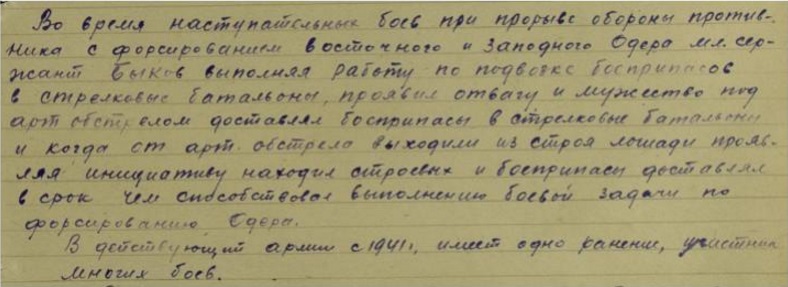 Во время наступательных боев при прорыве обороны против-
ника с форсированием Восточного и Западного Одера мл. сер-
жант Быков выполняя работу по подвозке боеприпасов
в стрелковые батальоны, проявил отвагу и мужество под
арт обстрелом доставлял боеприпасы в стрелковые батальоны
и когда от арт. обстрела выходили из строя лошади прояв-
ляя инициативу находил строевых и боеприпасы доставлял
в срок чем способствовал выполнению боевой задачи по
форсированию Одера.
В действующий армии с 1941г, имеет одно ранение, участник
многих боев.